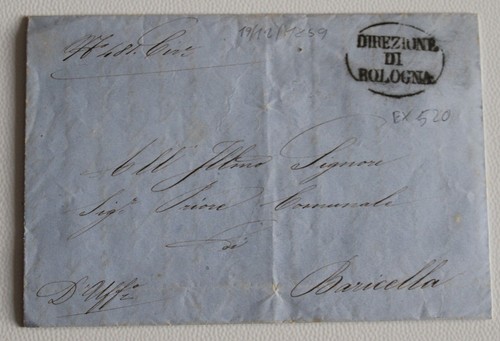 DIREZIONE
DI
BOLOGNA
EX 520
All' Illmo Signore
Sig.r Priore Comunale
di
Baricella
D'Uff.o